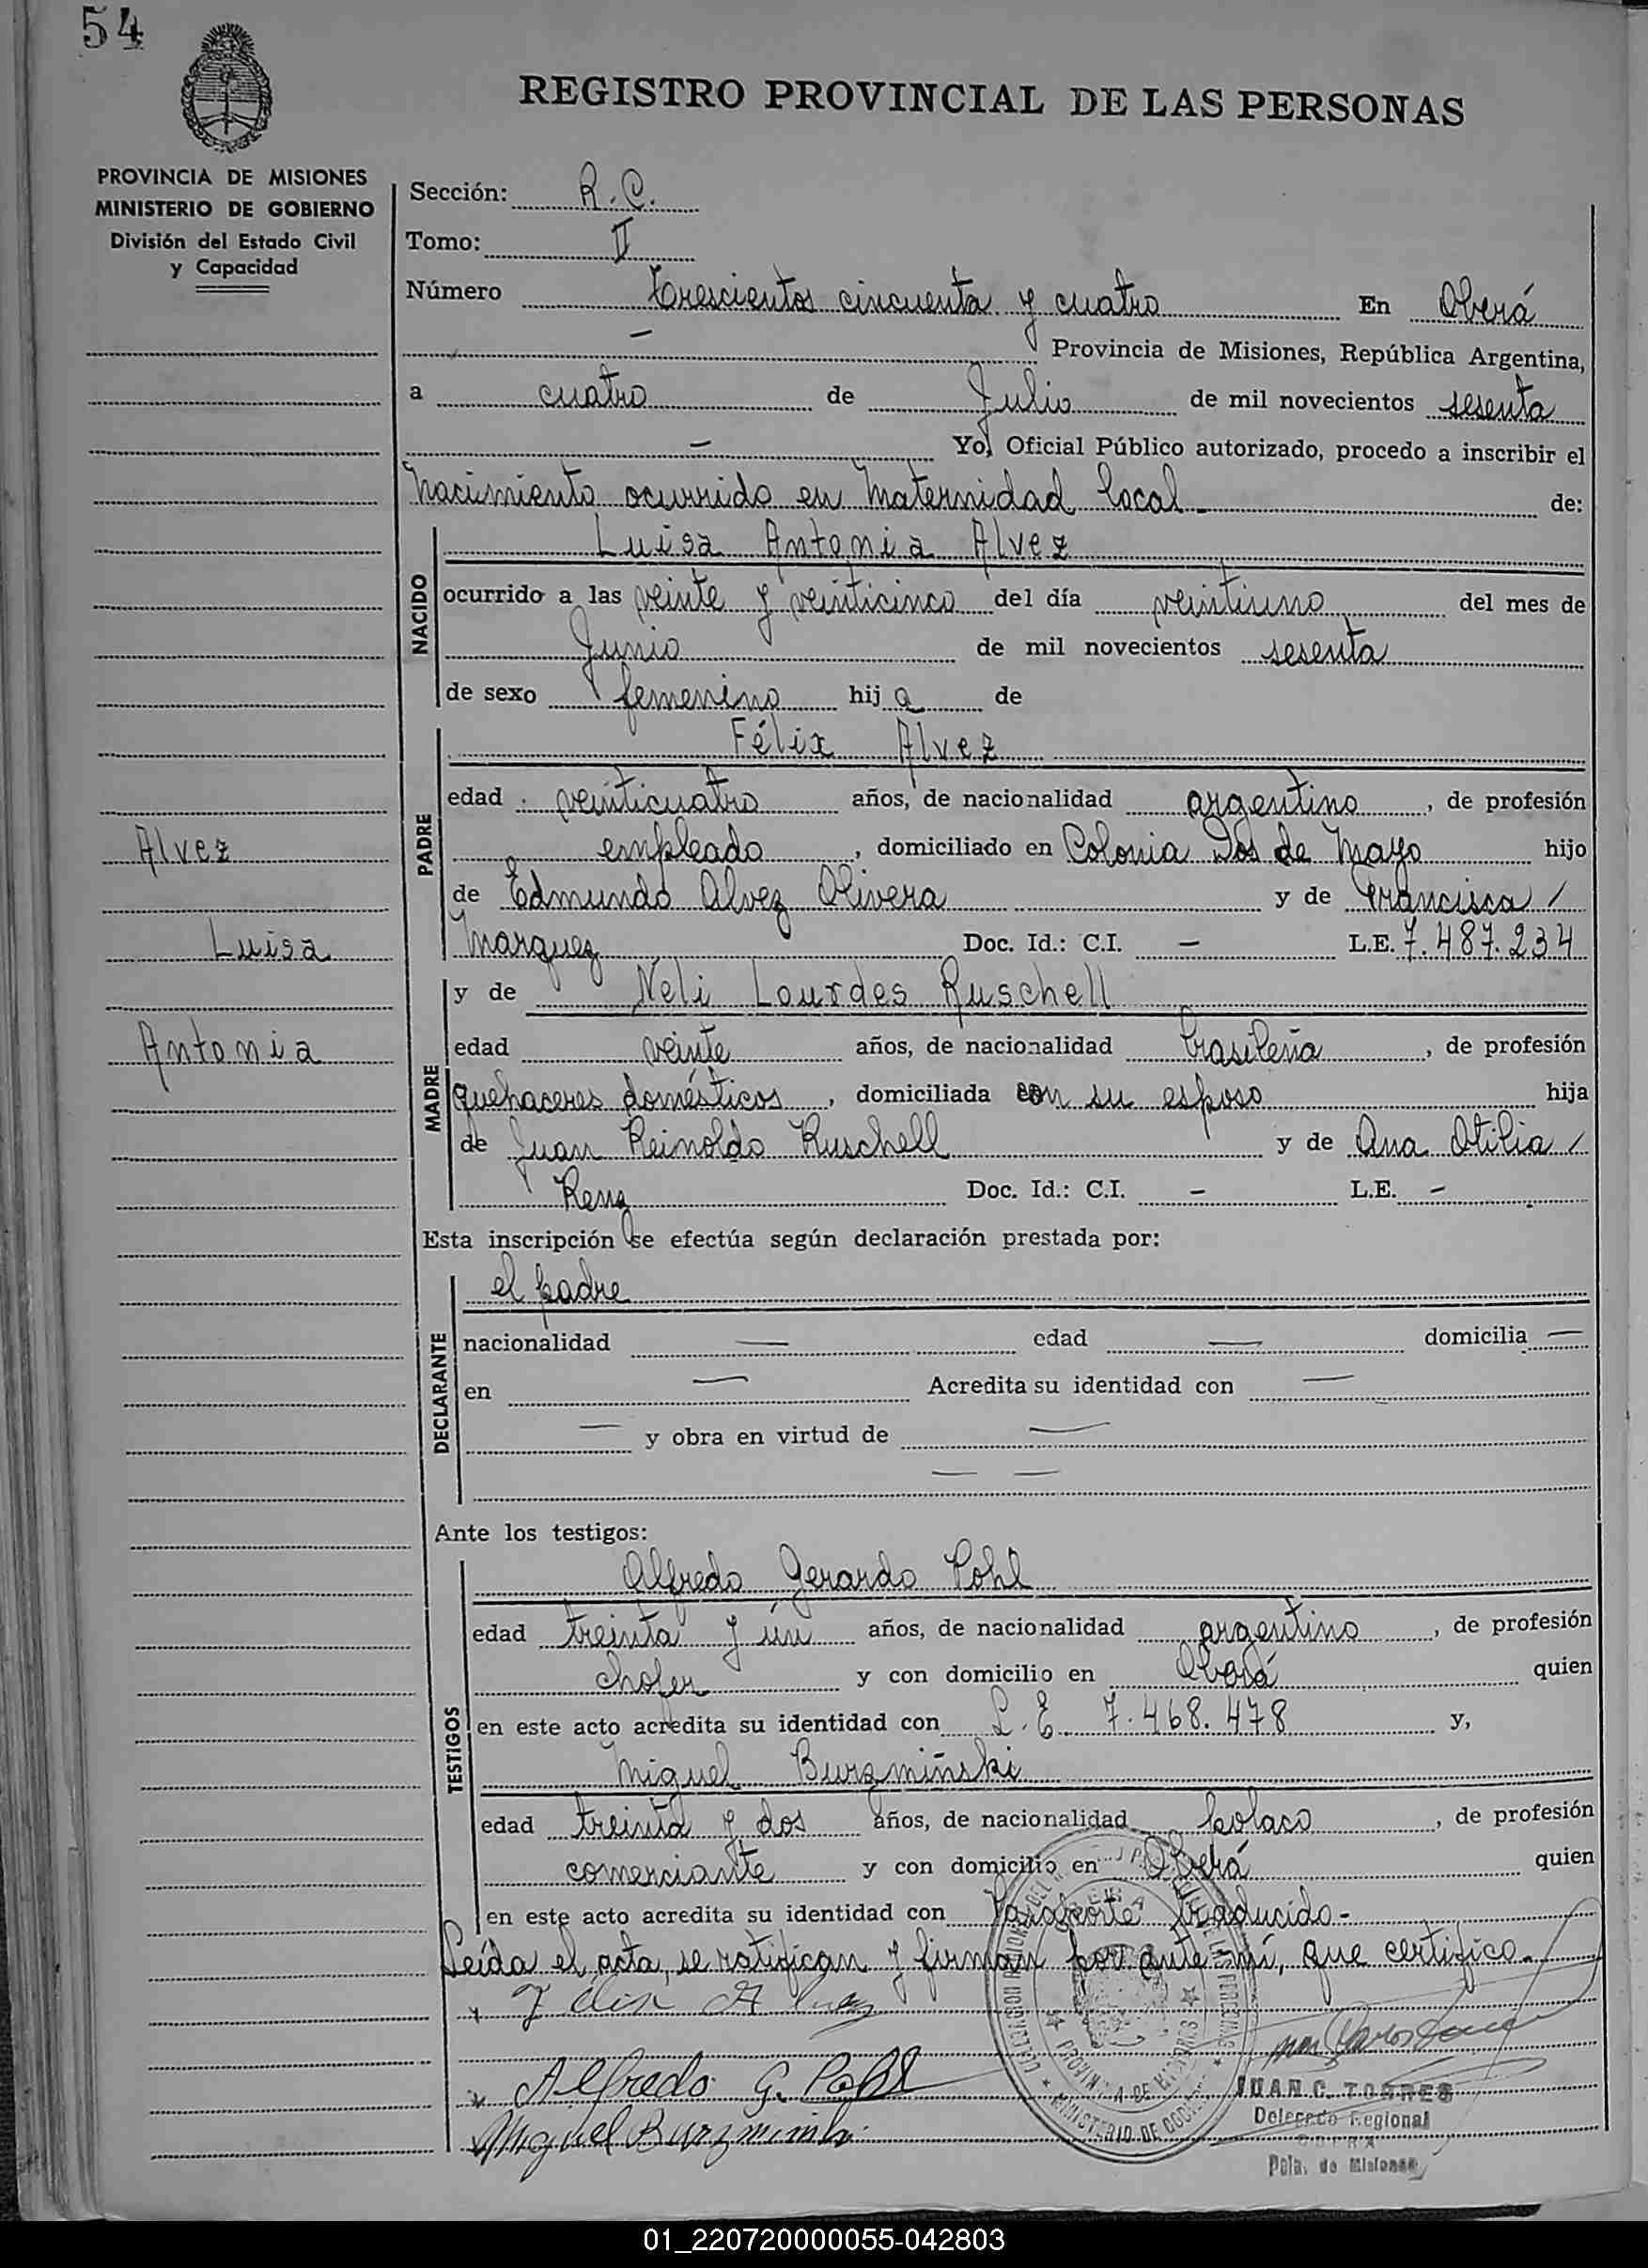 54
REGISTRO PROVINCIAL DE LAS PERSONAS
PROVINCIA DE MISIONES
MINISTERIO DE GOBIERNO
División del Estado Civil
y Capacidad
Sección: R. C.
Tomo: II
Número Trescientos cincuenta y cuatro En Oberá
— Provincia de Misiones, República Argentina,
a cuatro de Julio de mil novecientos sesenta
— Yo, Oficial Público autorizado, procedo a inscribir el
Nacimiento ocurrido en Maternidad local - de:
NACIDO
Luisa Antonia Alvez
ocurrido a las veinte y veinticinco del día veintiuno del mes de
Junio de mil novecientos sesenta
de sexo femenino hija de
PADRE
Félix Alvez
edad veinticuatro años, de nacionalidad argentino, de profesión
empleado, domiciliado en Colonia Dos de Mayo hijo
de Edmundo Alvez Olivera y de Francisca /
Marquez Doc. Id.: C.I. — L.E. 7.487.234
Alvez
Luisa
Antonia
MADRE
y de Neli Lourdes Ruschell
edad veinte años, de nacionalidad brasileña, de profesión
quehaceres domésticos, domiciliada con su esposo hija
de Juan Reinoldo Ruschell y de Ana Otilia /
Renz Doc. Id.: C.I. — L.E. —
Esta inscripción se efectúa según declaración prestada por:
DECLARANTE
el padre
nacionalidad — edad — domicilia —
en — Acredita su identidad con —
— y obra en virtud de —
— —
Ante los testigos:
TESTIGOS
Alfredo Gerardo Pohl
edad treinta y ún años, de nacionalidad argentino, de profesión
chofer y con domicilio en Oberá quien
en este acto acredita su identidad con L. E. 7.468.478 y,
Miguel Burzmiñski
edad treinta y dos años, de nacionalidad polaco, de profesión
comerciante y con domicilio en Oberá quien
en este acto acredita su identidad con Pasaporte traducido-
Leída el acta, se ratifican y firman por ante mí, que certifico.
Félix Alvez
Alfredo G. Pohl
Miguel Burzminski
JUAN C. TORRES
Delegado Regional
OBERA
Pcia. de Misiones
PROVINCIA DE MISIONES
MINISTERIO DE GOBIERNO
01_220720000055-042803